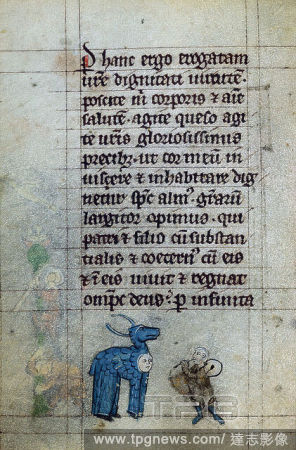 P hanc ergo erogatam
ure dignitati uirtute.
poscite m corporis & aie
salute. agite queso agi
te uris gloriosissimis
precibz. ut cor meu in
uiscere & inhabitare dig
netur spc alm. graru
largitor optimus. qui
patri & filio cu substan
tialis & coetern. cu eis
& i eis uiuit & regnat
omps deus. p infinita
www.tpgnews.com/達志影像